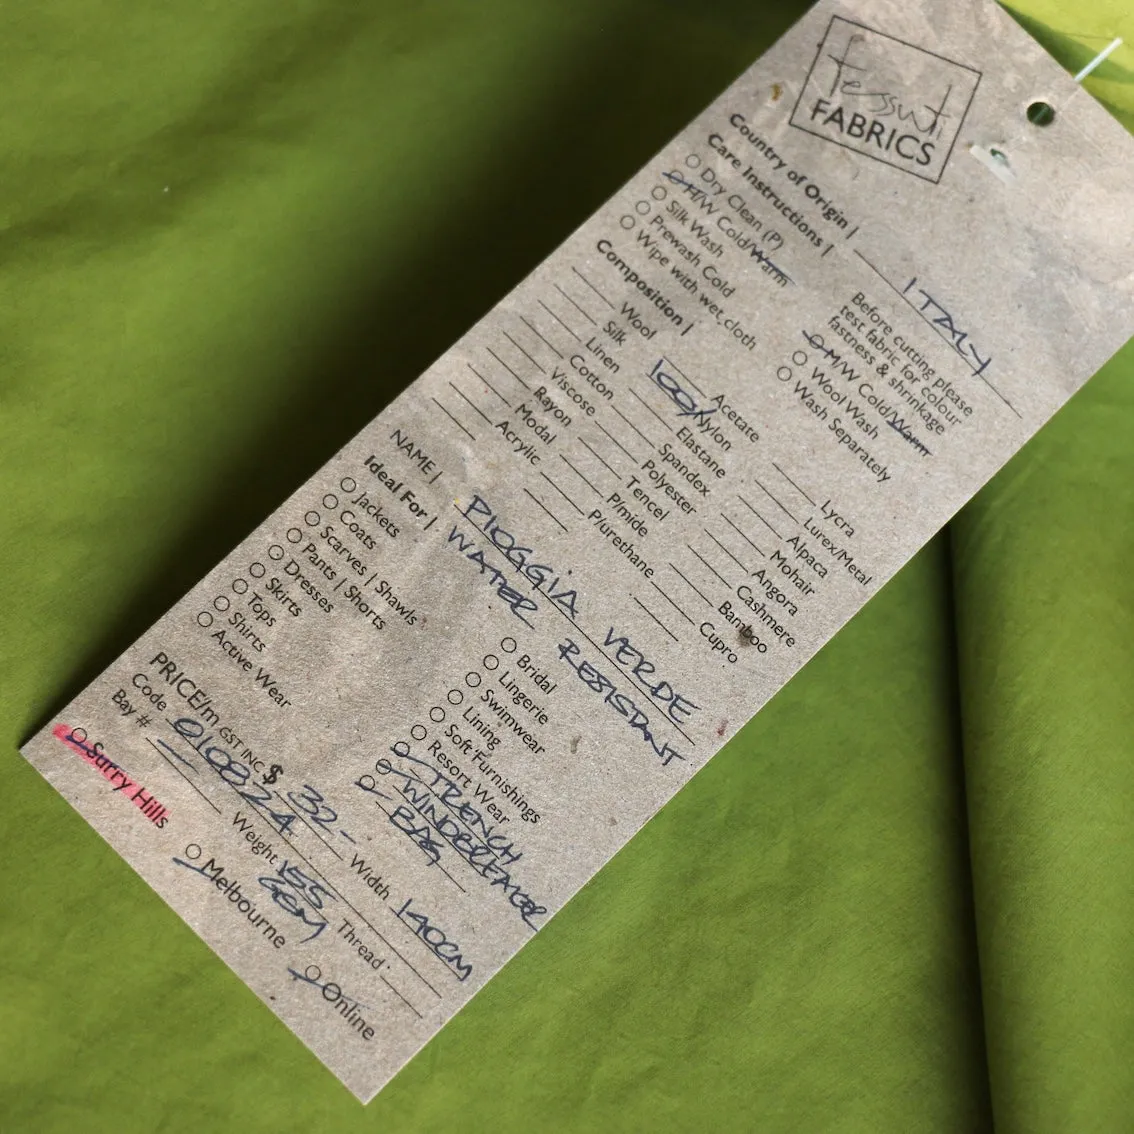 Tessuti
FABRICS
Country of Origin | ITALY
Care Instructions |
Dry Clean (P)
H/W Cold/Warm
Silk Wash
Prewash Cold
Wipe with wet cloth
Before cutting please
test fabric for colour
fastness & shrinkage
M/W Cold/Warm
Wool Wash
Wash Separately
Composition |
Wool
Silk
Linen
Cotton
Viscose
Rayon
Modal
Acrylic
Acetate
100% Nylon
Elastane
Spandex
Polyester
Tencel
P/mide
P/urethane
Lycra
Lurex/Metal
Alpaca
Mohair
Angora
Cashmere
Bamboo
Cupro
NAME | PIOGGIA VERDE
WATER RESISTANT
Ideal For |
Jackets
Coats
Scarves | Shawls
Pants | Shorts
Dresses
Skirts
Tops
Shirts
Active Wear
Bridal
Lingerie
Swimwear
Lining
Soft Furnishings
Resort Wear
TRENCH
WINDBREAKER
BAG
PRICE/m GST INC $ 32- Width 140CM
Code 010824 Weight 155 Thread
GSM
Bay #
Surry Hills
Melbourne
Online